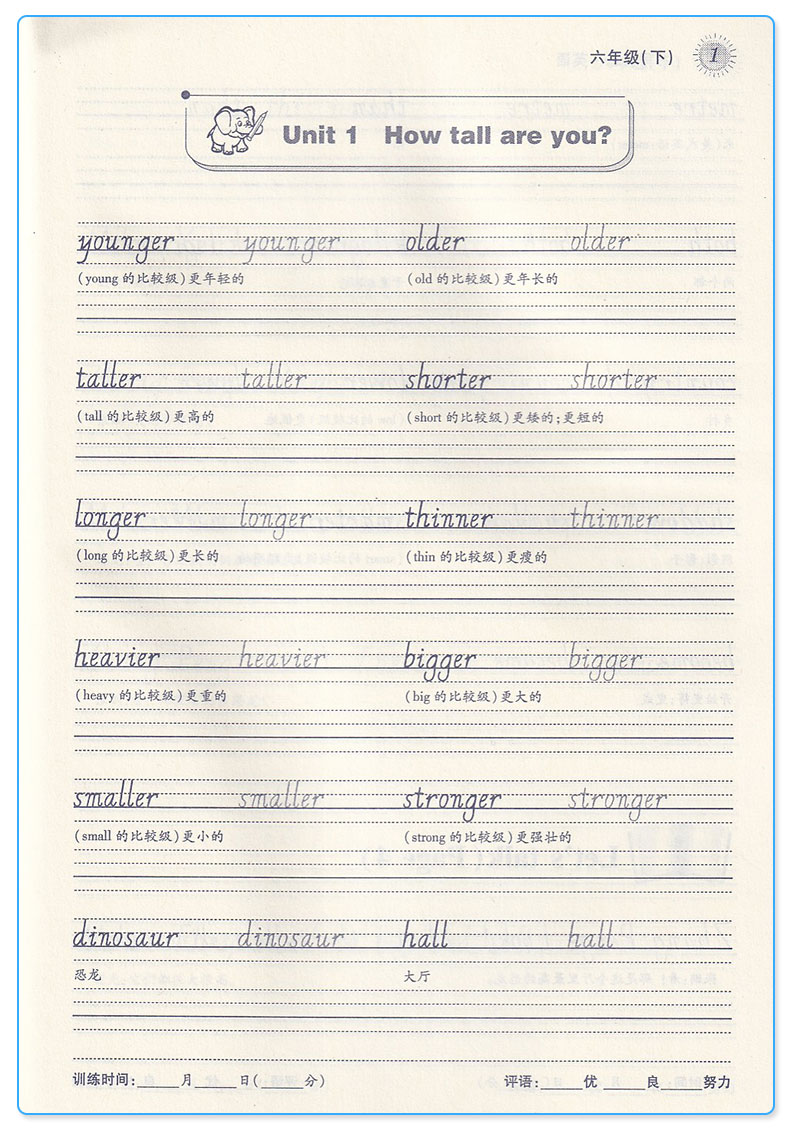 六年级(下) 1
Unit 1 How tall are you?
younger younger older older
(young 的比较级)更年轻的 (old 的比较级)更年长的
taller taller shorter shorter
(tall 的比较级)更高的 (short 的比较级)更矮的;更短的
longer longer thinner thinner
(long 的比较级)更长的 (thin 的比较级)更瘦的
heavier heavier bigger bigger
(heavy 的比较级)更重的 (big 的比较级)更大的
smaller smaller stronger stronger
(small 的比较级)更小的 (strong 的比较级)更强壮的
dinosaur dinosaur hall hall
恐龙 大厅
训练时间:_____月_____日(_____分) 评语:_____优_____良_____努力